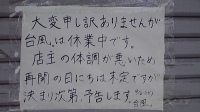 大変申し訳ありませんが
台風は休業中です。
店主の体調が悪いため
再開の日にちは未定ですが
決まり次第、予告します。
台風